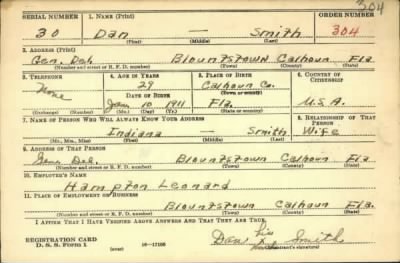 304
SERIAL NUMBER 1. NAME (Print) ORDER NUMBER
30 Dan — Smith 304
(First) (Middle) (Last)
2. ADDRESS (Print)
Gen. Del. Blountstown Calhoun Fla.
(Number and street or R. F. D. number) (Town) (County) (State)
3. TELEPHONE 4. AGE IN YEARS 5. PLACE OF BIRTH 6. COUNTRY OF CITIZENSHIP
None 29 Calhoun Co.
DATE OF BIRTH (Town or county)
Jan 10 1911 Fla. U.S.A.
(Exchange) (Number) (Mo.) (Day) (Yr.) (State or country)
7. NAME OF PERSON WHO WILL ALWAYS KNOW YOUR ADDRESS 8. RELATIONSHIP OF THAT PERSON
Indiana — Smith Wife
(Mr., Mrs., Miss) (First) (Middle) (Last)
9. ADDRESS OF THAT PERSON
Gen. Del. Blountstown Calhoun Fla
(Number and street or R. F. D. number) (Town) (County) (State)
10. EMPLOYER'S NAME
Hampton Leonard
11. PLACE OF EMPLOYMENT OR BUSINESS
Blountstown Calhoun Fla.
(Number and street or R. F. D. number) (Town) (County) (State)
I AFFIRM THAT I HAVE VERIFIED ABOVE ANSWERS AND THAT THEY ARE TRUE.
REGISTRATION CARD
D. S. S. Form 1 (over) 16—17105
Dan his mark Smith
(Registrant's signature)